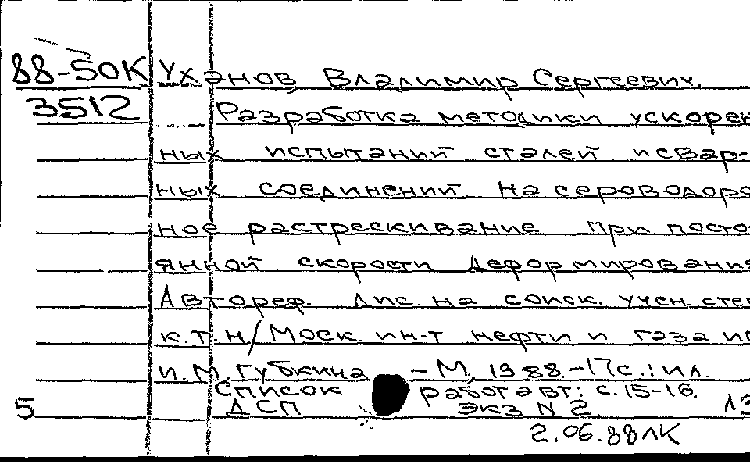 88-50К Уханов Владимир Сергеевич.
3512 Разработка методики ускорен
ных испытаний сталей и свар-
ных соединений на сероводоро
ное растрескивание при посто
янной скорости деформирования
Автореф. дис на соиск. учен степ
к.т.н/Моск ин-т нефти и газа им
И.М. Губкина - М, 1988.-17с.: ил.
Список работ авт: с.15-16.
5 ДСП экз N 2
2.06.88 ЛК